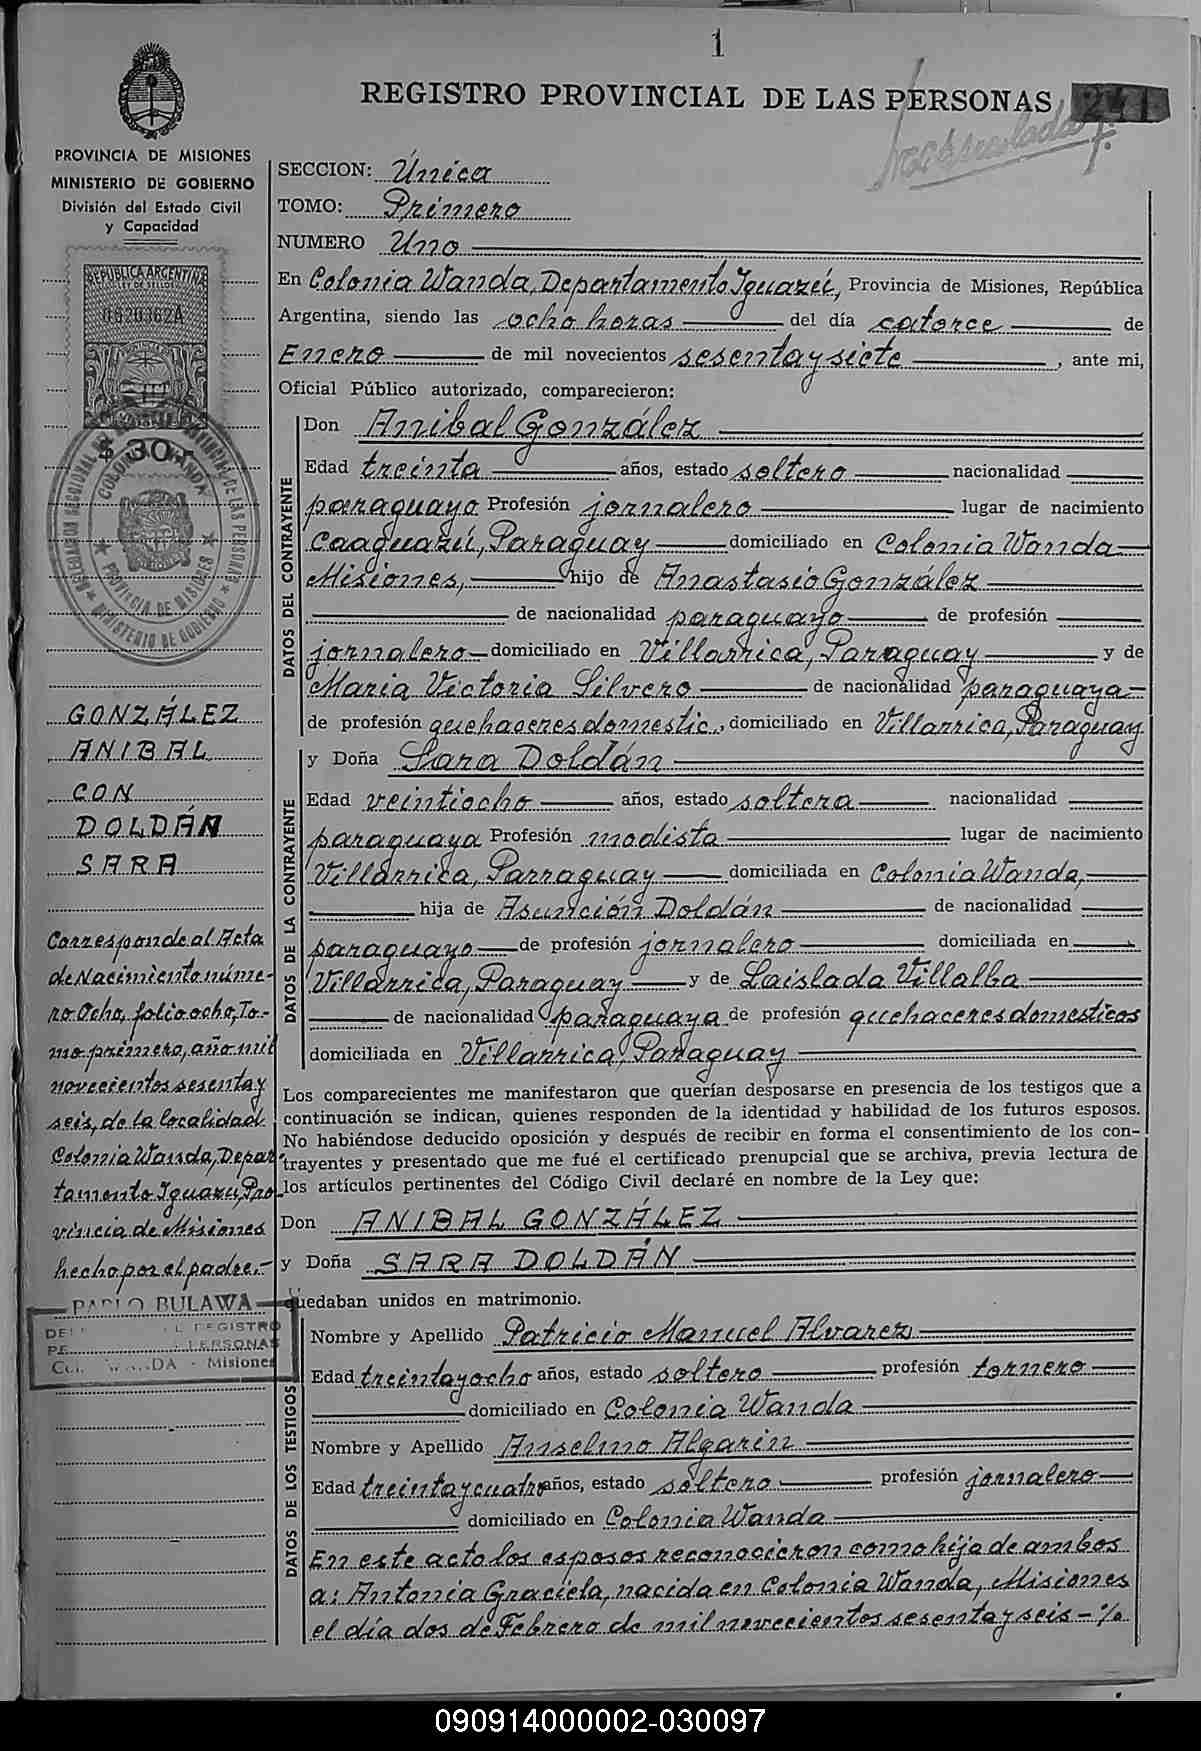 1
REGISTRO PROVINCIAL DE LAS PERSONAS
PROVINCIA DE MISIONES
MINISTERIO DE GOBIERNO
División del Estado Civil
y Capacidad
REPUBLICA ARGENTINA
LEY DE SELLOS
$ 30.-
COLONIA WANDA
PROVINCIA DE MISIONES
MINISTERIO DE GOBIERNO
GONZÁLEZ
ANIBAL
CON
DOLDÁN
SARA
Corresponde al Acta
de Nacimiento núme-
ro Ocho, folio ocho, To-
mo primero, año mil
novecientos sesenta y
seis, de la localidad
Colonia Wanda, Depar-
tamento Iguazu, Pro-
vincia de Misiones
hecho por el padre.-
PABLO BULAWA
REGISTRO
PERSONAS
Misiones
SECCION: Única
TOMO: Primero
NUMERO Uno
En Colonia Wanda, Departamento Iguazú, Provincia de Misiones, República
Argentina, siendo las ocho horas del día catorce de
Enero de mil novecientos sesenta y siete, ante mi,
Oficial Público autorizado, comparecieron:
DATOS DEL CONTRAYENTE
Don Anibal González
Edad treinta años, estado soltero nacionalidad
paraguayo Profesión jornalero lugar de nacimiento
Caaguazú, Paraguay domiciliado en Colonia Wanda
Misiones, hijo de Anastasio González
de nacionalidad paraguayo de profesión
jornalero domiciliado en Villarrica, Paraguay y de
Maria Victoria Silvero de nacionalidad paraguaya
de profesión quehaceres domestic., domiciliado en Villarrica, Paraguay
DATOS DE LA CONTRAYENTE
y Doña Sara Doldán
Edad veintiocho años, estado soltera nacionalidad
paraguaya Profesión modista lugar de nacimiento
Villarrica, Parraguay domiciliada en Colonia Wanda,
hija de Asunción Doldán de nacionalidad
paraguayo de profesión jornalero domiciliada en
Villarrica, Paraguay y de Laislada Villalba
de nacionalidad paraguaya de profesión quehaceres domesticos
domiciliada en Villarrica, Paraguay
Los comparecientes me manifestaron que querían desposarse en presencia de los testigos que a
continuación se indican, quienes responden de la identidad y habilidad de los futuros esposos.
No habiéndose deducido oposición y después de recibir en forma el consentimiento de los con-
trayentes y presentado que me fué el certificado prenupcial que se archiva, previa lectura de
los artículos pertinentes del Código Civil declaré en nombre de la Ley que:
Don ANIBAL GONZÁLEZ
y Doña SARA DOLDÁN
quedaban unidos en matrimonio.
DATOS DE LOS TESTIGOS
Nombre y Apellido Patricio Manuel Alvarez
Edad treinta y ocho años, estado soltero profesión tornero
domiciliado en Colonia Wanda
Nombre y Apellido Anselmo Algarin
Edad treinta y cuatro años, estado soltero profesión jornalero
domiciliado en Colonia Wanda
En este acto los esposos reconocieron como hija de ambos
a: Antonia Graciela, nacida en Colonia Wanda, Misiones
el día dos de Febrero de mil novecientos sesenta y seis - %
090914000002-030097